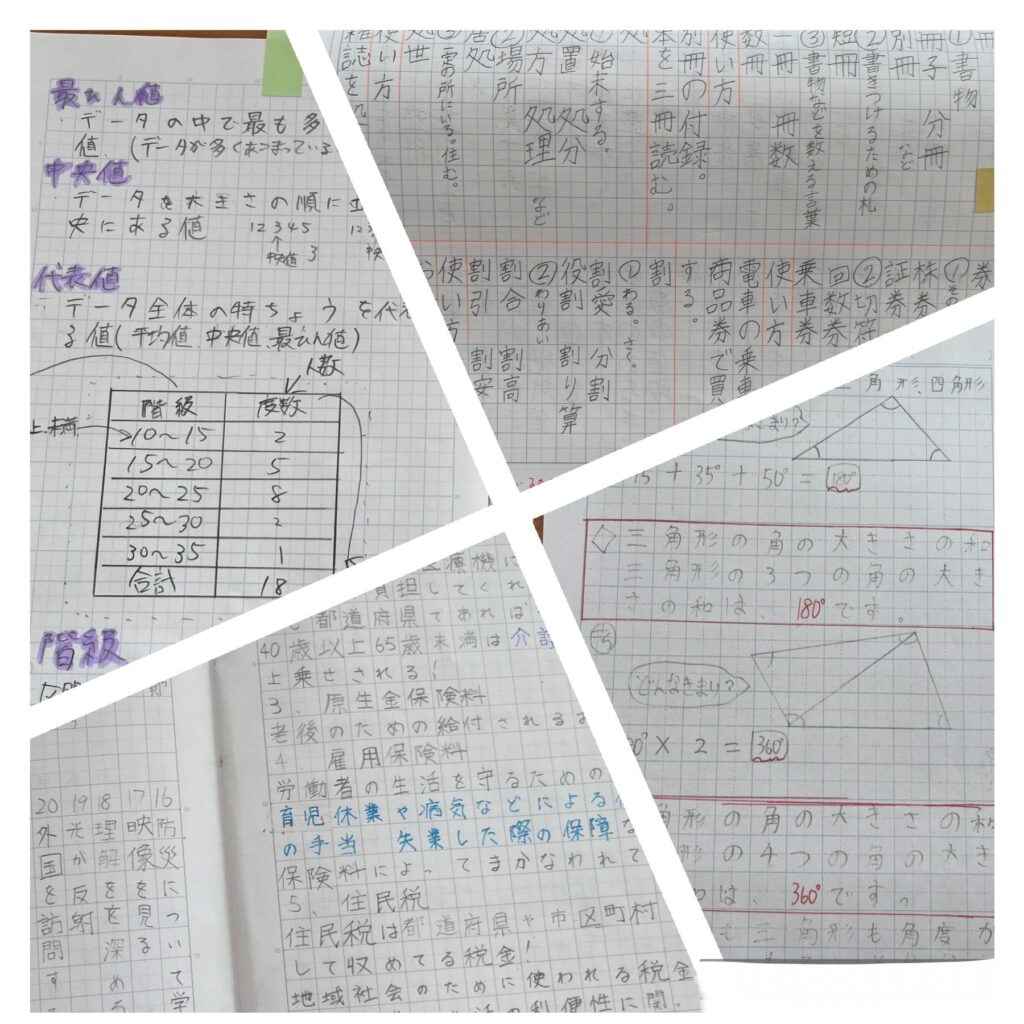 最ひん値
・データの中で最も多
値.(データが多くあつまっている
中央値
・データを大きさの順に
央にある値 1 2 3 4 5
↑
中央値 3
代表値
・データ全体の特ちょうを代
る値(平均値.中央値.最ひん値)
人数
階級 度数
上.未満
10〜15 2
15〜20 5
20〜25 8
25〜30 2
30〜35 1
合計 18
階級
①書物
冊子 分冊
別冊 など
②書きつけるための札
短冊
③書物などを数える言葉
一冊 冊数
数冊
使い方
別冊の付録。
本を三冊読む。
①始末する。
処置 処分
処方 処理 など
②場所
居処
③定の所にいる。住む。
処世
使い方
雑誌を処
券
①その
株券
証券
②切符
回数券
乗車券
使い方
電車の乗車
商品券で買
する。
割
①わる。さく。
割愛 分割
役割 割り算
②わりあい
割合 割高
割引 割安
使い方
角形、四角形
まり?
15+35°+50°=180°
◇三角形の角の大きさの和
三角形の3つの角の大き
さの和は、180°です。
どんなきまり?
0°×2=360°
角形の角の大きさの和
形の4つの角の大き
は、360°です。
も三角形も角度が
医療機に
負担してくれ
都道府県であれば
40歳以上65歳未満は介
上乗せされる!
3.原生金保険料
老後のための給付されるお
4.雇用保険料
労働者の生活を守るための
育児休業や病気などによる
の手当 失業した際の保障
保険料によってまかなわれて
5.住民税
住民税は都道府県や市区町村
して収めてる税金!
地域社会のために使われる税金
の利便性に関
16 防災について学
17 映像を見る
18 理解を深め
19 光が反射す
20 外国を訪問する